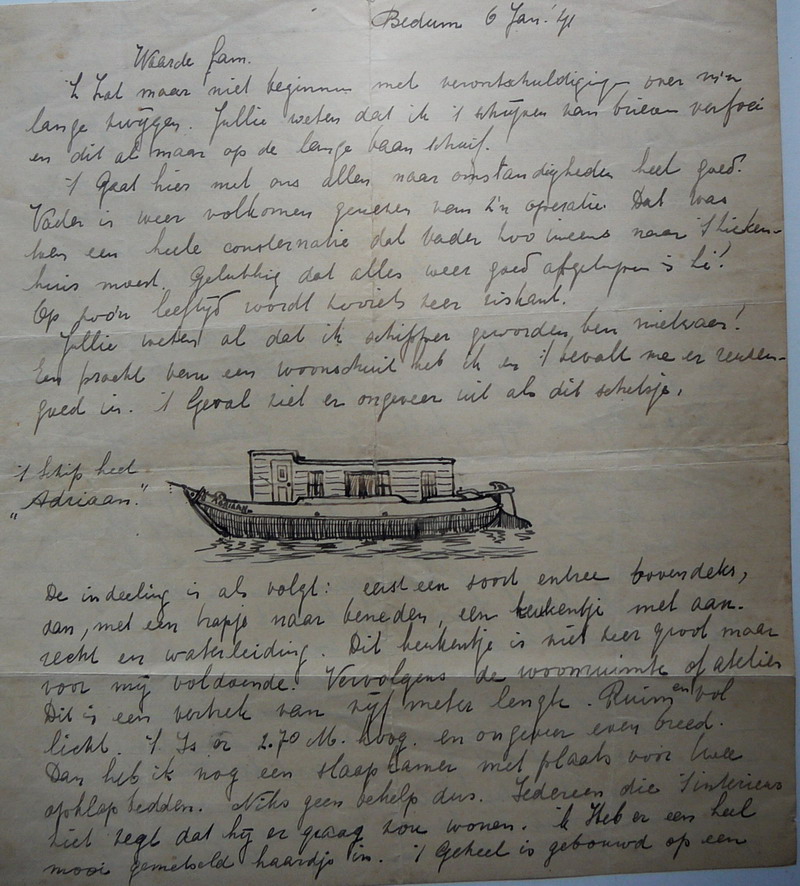 Bedum 6 Jan. '41
Waarde fam.
'k Zal maar niet beginnen met verontschuldigingen over m'n
lange zwijgen. Jullie weten dat ik 't schrijven van brieven verfoei
en dit al maar op de lange baan schuif.
't Gaat hier met ons allen naar omstandigheden heel goed.
Vader is weer volkomen genezen van z'n operatie. Dat was
een heele consternatie dat vader zoo ineens naar 't zieken-
huis moest. Gelukkig dat alles weer goed afgeloopen is hè!
Op zoo'n leeftijd wordt zooiets zeer riskant.
Jullie weten al dat ik schipper geworden ben nietwaar!
Een pracht van een woonschuit heb ik en 't bevalt me er reuzen-
goed in. 't Geval ziet er ongeveer uit als dit schetsje.
't Schip heet
"Adriaan."
ADRIAAN
De indeeling is als volgt: eerst een soort entree bovendeks,
dan, met een trapje naar beneden, een keukentje met aan-
recht en waterleiding. Dit keukentje is niet zeer groot maar
voor mij voldoende. Vervolgens de woonruimte of atelier
Dit is een vertrek van vijf meter lengte. Ruim en vol
licht. 't Is er 2.70 M. hoog en ongeveer even breed.
Dan heb ik nog een slaapkamer met plaats voor twee
opklapbedden. Niks geen behelp dus. Iedereen die 't interieur
ziet zegt dat hij er graag zou wonen. 'k Heb er een heel
mooi gemetseld haardje in. 't Geheel is gebouwd op een